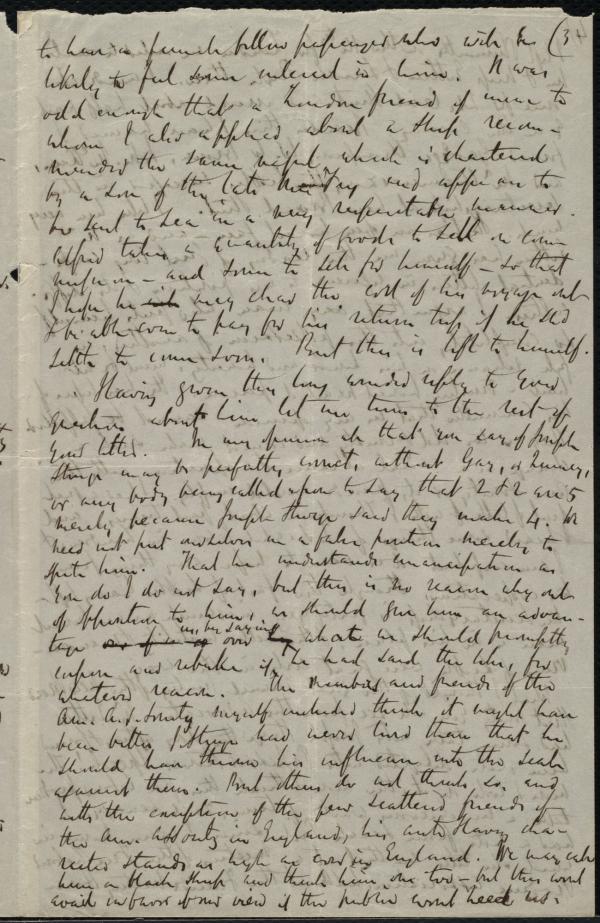 to have a female fellow passenger who will be (3
likely to feel some interest in him. It was
odd enough that a London friend of mine to
whom I also applied about a ship recom-
mended the same vessel, which is chartered
by a son of the late and appears to
be sent to sea in a very respectable manner.
Alfred takes a quantity of goods to sell on com-
mission - and some to sell for himself - so that
I hope he may clear the cost of his voyage out
& be able even to pay for his return trip if he shd
settle to come soon. But this is left to himself.
Having given this long winded reply to your
question about him let me turn to the rest of
your letter. In my opinion all that you say of Joseph
Sturge may be perfectly correct, without Gay, or Quincy,
or any body being called upon to say that 2 & 2 are 5
merely because Joseph Sturge said they make 4. We
need not put ourselves in a false position merely to
spite him. That he understands emancipation as
you do I do not say, but this is no reason why out
of opposition to him, we should give him an advan-
tage over us, by saying what we should promptly
expose and rebuke if he had said the like, for
whatever reason. The members and friends of the
Am. A. S. Society myself included think it might have
been better J. Sturge had never lived than that he
should have thrown his influence into the scale
against them. But others do not think so, and
with the exception of the few scattered friends of
the Am. AS Society in England, his anti slavery cha-
racter stands as high as ever in England. We may call
him a black sheep and think him one too - but this wont
avail in favor of our view if the public wont heed us.